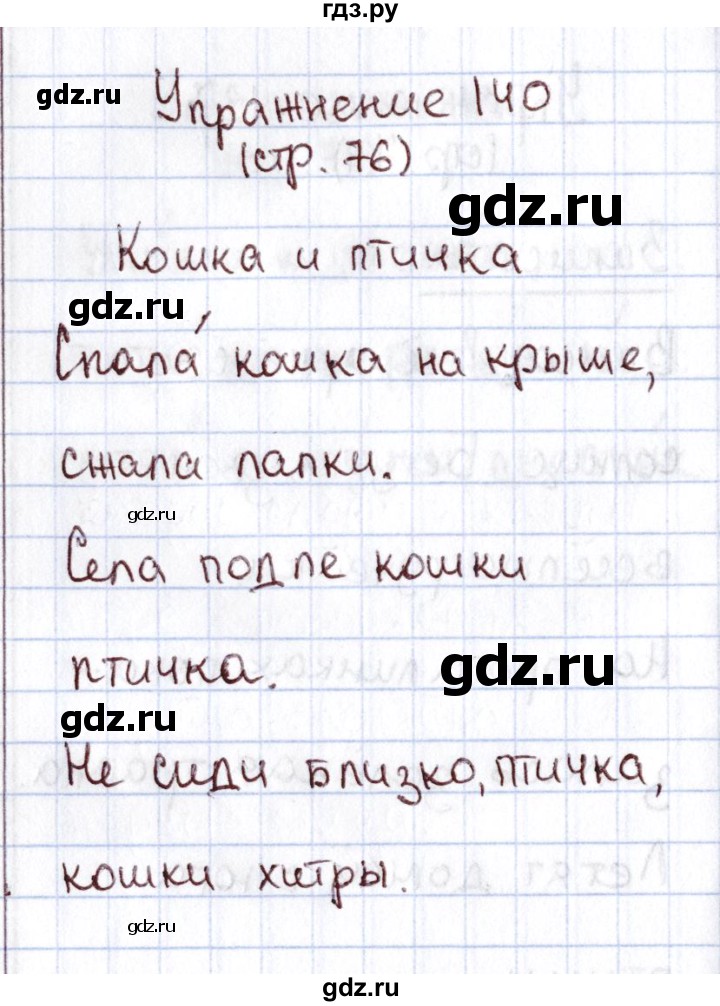 гдз.ру
gdz.ru
Упражнение 140
(стр. 76)
gdz.ru
Кошка и птичка
gdz.ru
Спала́ кошка на крыше,
сжала лапки.
gdz.ru
Села подле кошки
gdz.ru
птичка.
gdz.ru
Не сиди близко, птичка,
кошки хитры.
gdz.ru